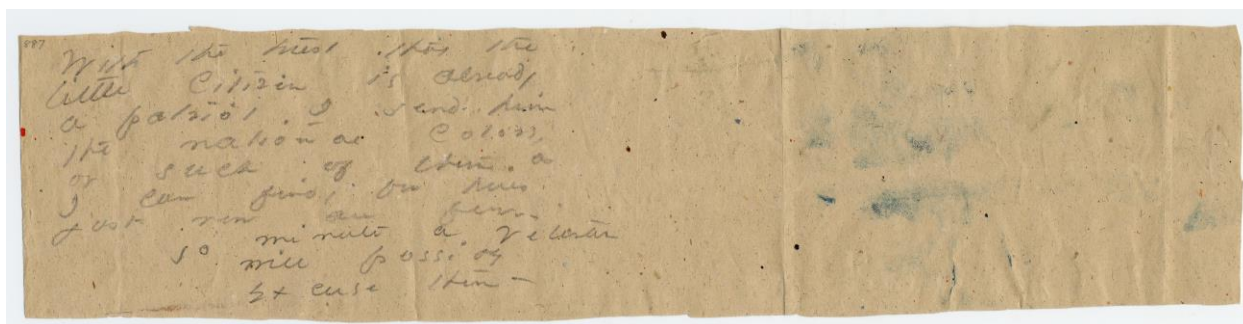 With the trust that the
little Citizen is already
a patriot, I send him
the national Colors,
or such of them as
I can find, for hues
just now are few.
so minute a Veteran
will possibly
Excuse them -